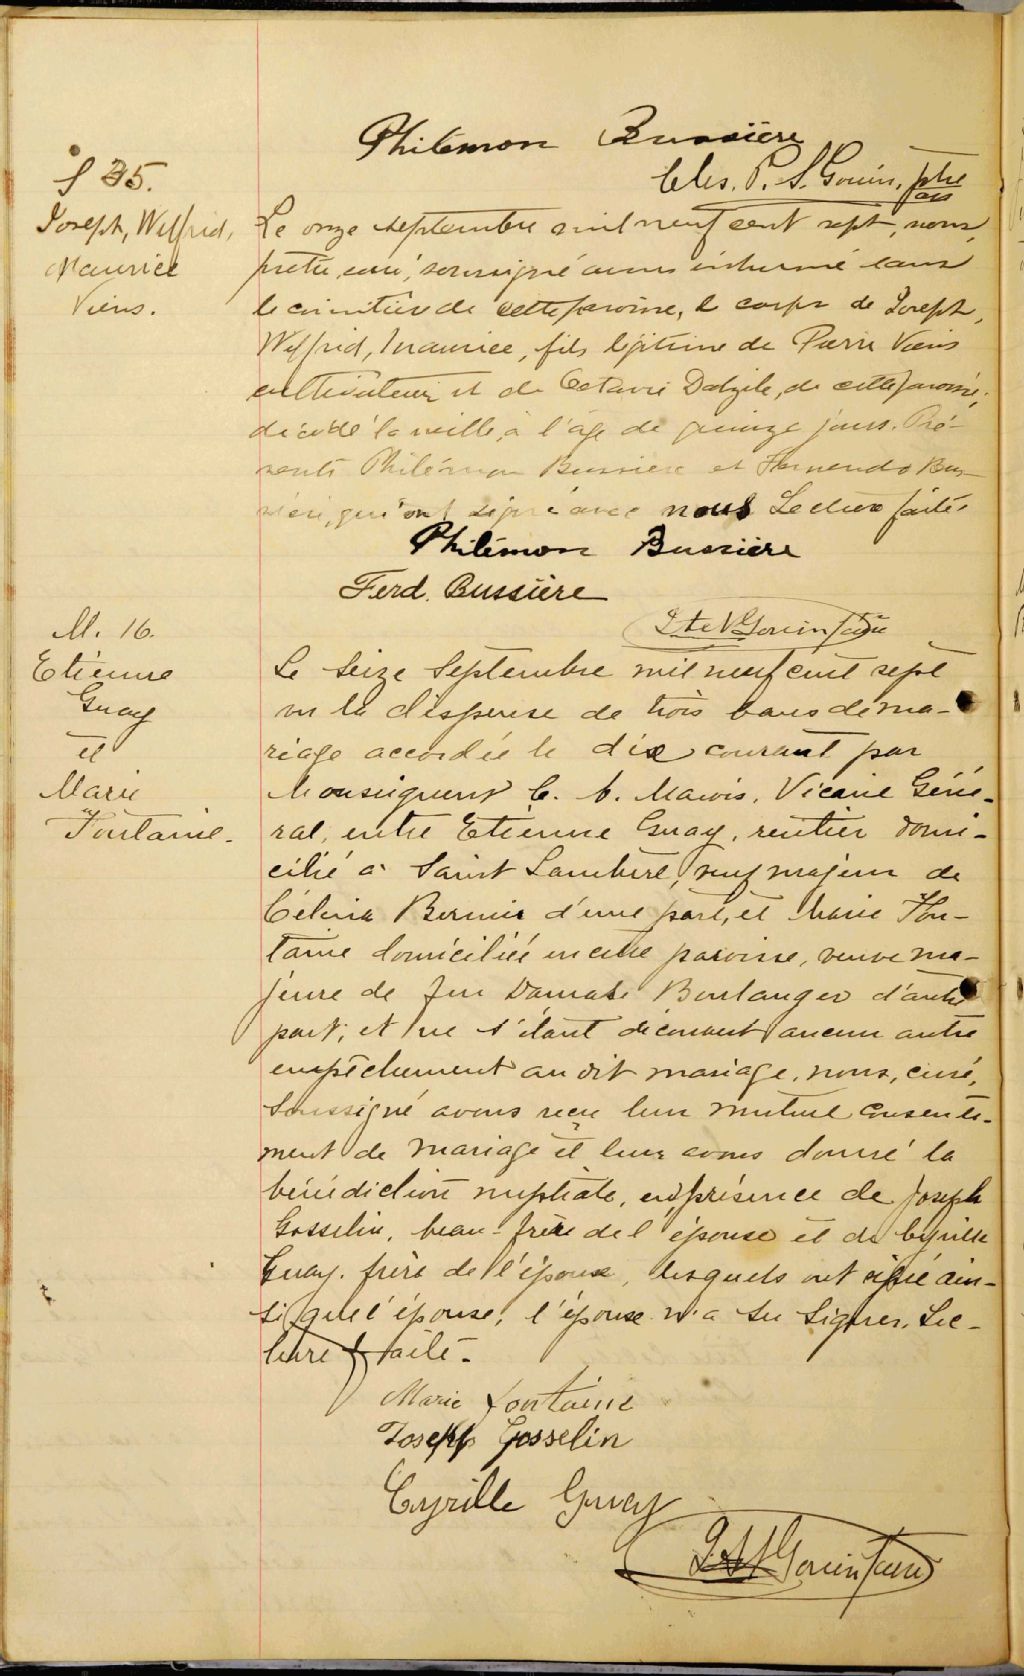 Philémon Bussière
Chs. P. S. Gouin, ptre
S 35.
Joseph, Wilfrid,
Maurice
Viens.
Le onze septembre mil neuf cent sept, nous,
prêtre, curé, soussigné avons inhumé dans
le cimitière de cette paroisse, le corps de Joseph,
Wilfrid, Maurice, fils légitime de Pierre Viens
cultivateur et de Octavie Dalzile, de cette paroisse,
décédé la veille, à l'âge de quinze jours. Pré-
sents Philémon Bussière et Fernando Bus-
sière, qui ont signé avec nous Lecture faite.
Philémon Bussière
Ferd. Bussière
Gouin
M. 16.
Etienne
Guay
et
Marie
Fontaine.
Le seize Septembre mil neuf cent sept
vu la dispense de trois bans de ma-
riage accordée le dix courant par
Monseigneur C. A. Marois, Vicaire Géné-
ral, entre Etienne Guay, rentier domi-
cilié à Saint Lambert, veuf majeur de
Célina Bernier d'une part, et Marie Fon-
taine domiciliée en cette paroisse, veuve ma-
jeure de feu Damase Boulanger d'autre
part; et ne s'étant découvert aucun autre
empêchement au dit mariage, nous, curé,
soussigné avons reçu leur mutuel consente-
ment de mariage et leur avons donné la
bénédiction nuptiale, en présence de Joseph
Gosselin, beau-frère de l'épouse et de Cyrille
Guay, frère de l'époux, lesquels ont signé ain-
si que l'épouse; l'épouse n'a su signer. Lec-
ture faite.
Marie Fontaine
Joseph Gosselin
Cyrille Guay
Gouin